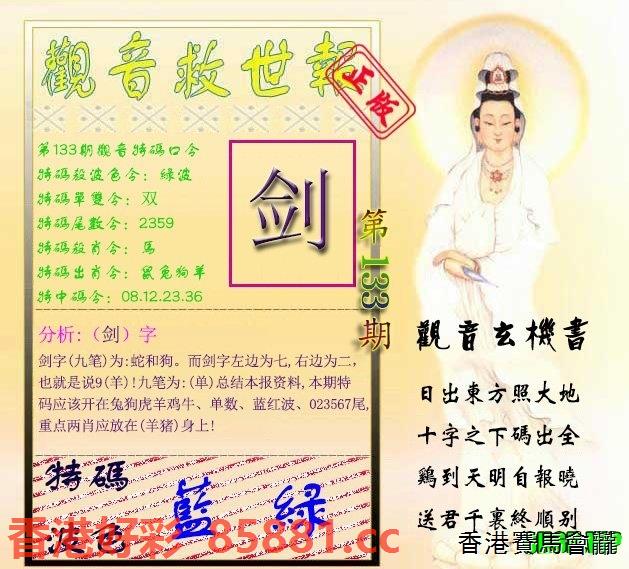 觀音救世報
正版
第133期觀音特碼口令
特碼殺波色令：綠波
特碼單雙令：双
特碼尾數令：2359
特碼殺肖令：馬
特碼出肖令：鼠兔狗羊
特中碼令：08.12.23.36
剑
第133期
分析:（剑）字
剑字(九笔)为:蛇和狗。而剑字左边为七,右边为二，
也就是说9(羊)!九笔为:(单)总结本报资料,本期特
码应该开在兔狗虎羊鸡牛、单数、蓝红波、023567尾,
重点两肖应放在(羊猪)身上!
特碼
波色
藍 綠
觀音玄機書
日出東方照大地
十字之下碼出全
鷄到天明自報曉
送君千裏終順别
香港好彩 85881.cc
香港賽馬會